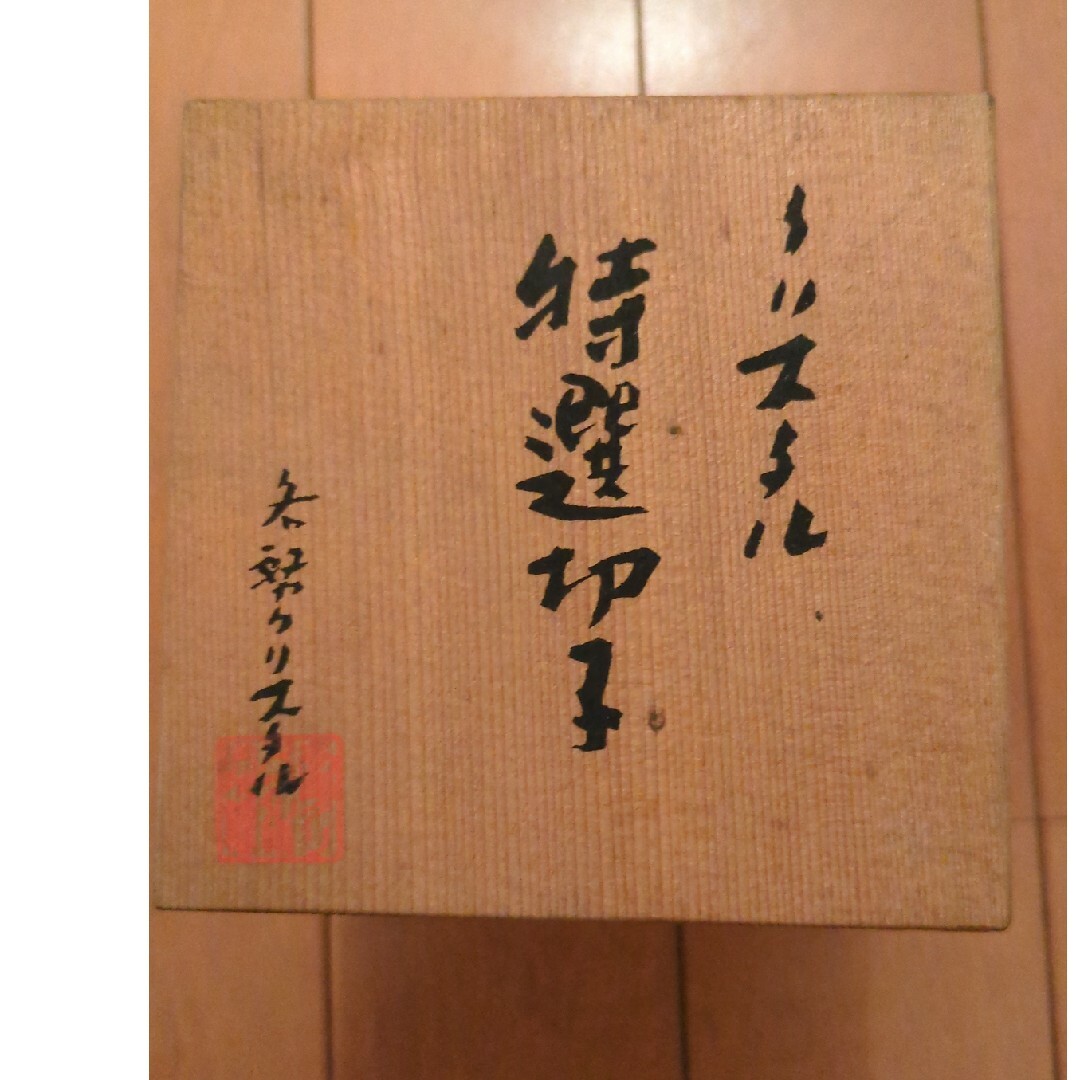 クリスタル
特選切子
各務クリスタル